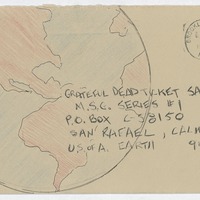 GRATEFUL DEAD TICKET SA
M.S.G. SERIES #1
P.O. BOX C-S8150
SAN RAFAEL, CALI
U.S. of A. EARTH 9